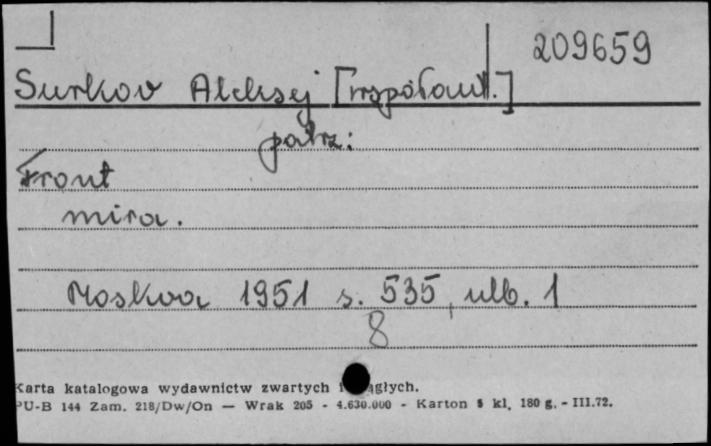 209659
Surkov Aleksej [współaut.]
patrz:
Front
mira.
Moskva 1951 s. 535, ulb. 1
8
Karta katalogowa wydawnictw zwartych i ciągłych.
PU-B 144 Zam. 218/Dw/On — Wrak 205 - 4.630.000 - Karton 5 kl, 180 g. - III.72.